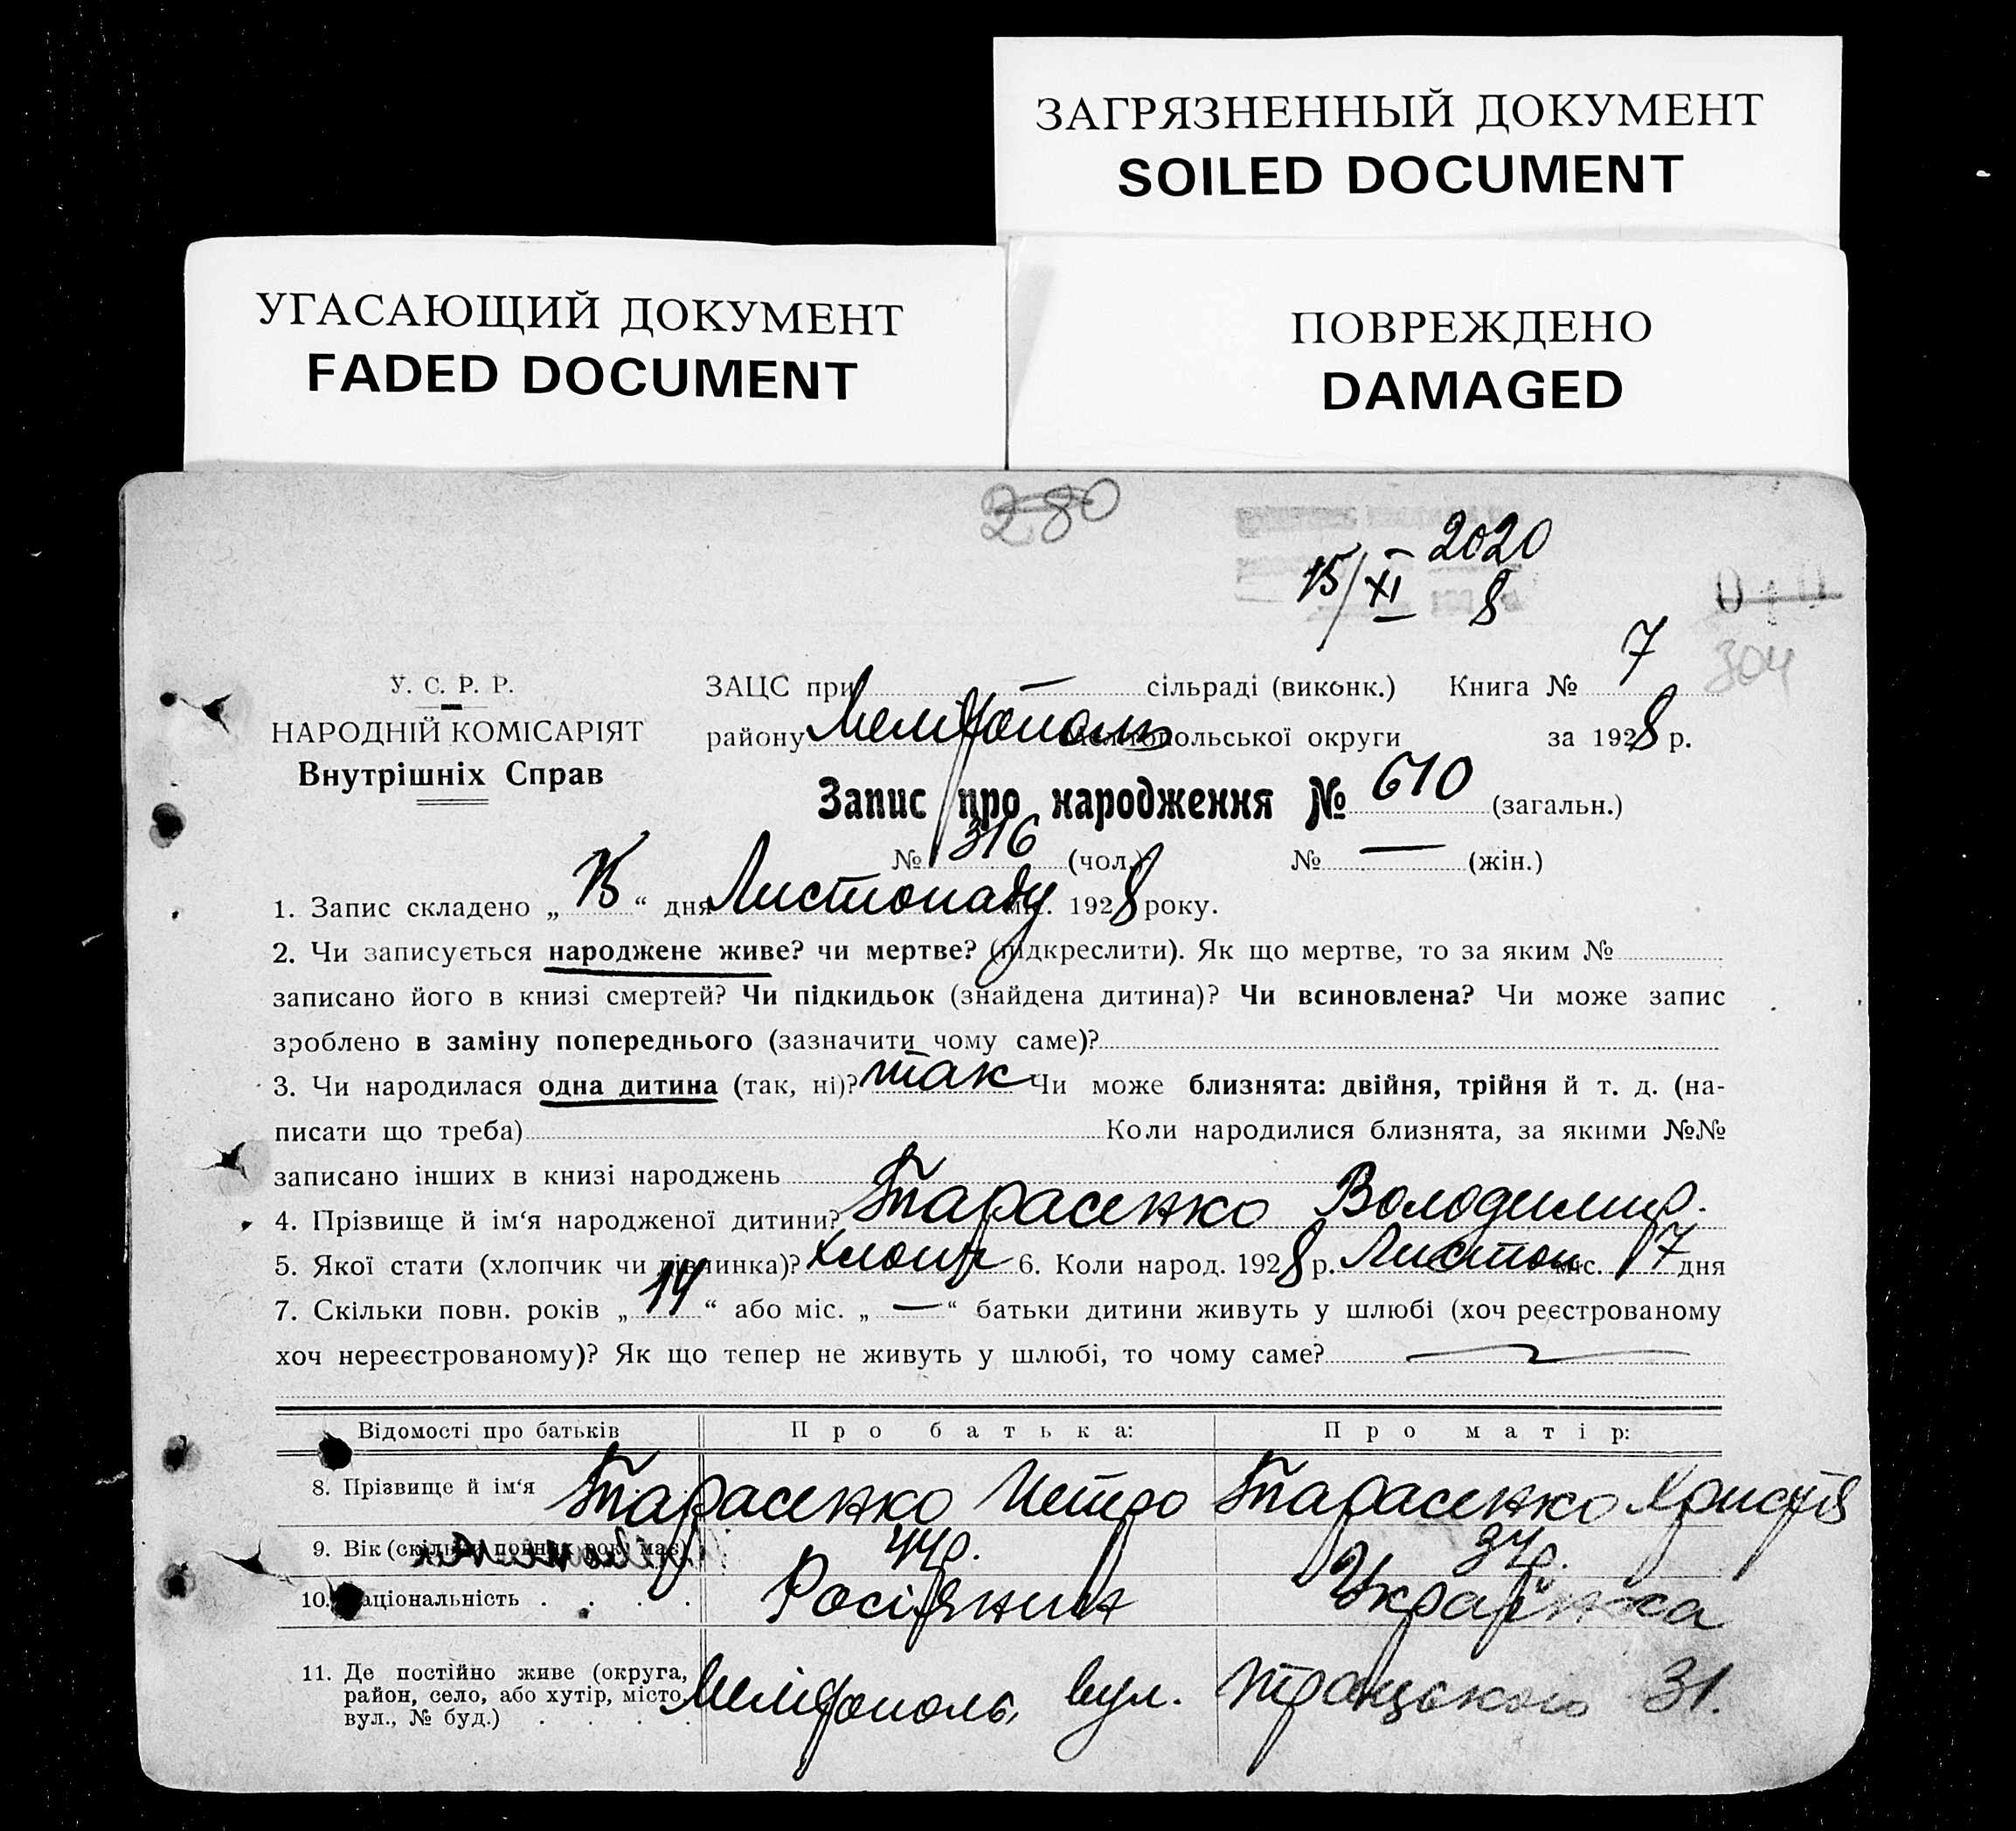 ЗАГРЯЗНЕННЫЙ ДОКУМЕНТ
SOILED DOCUMENT
УГАСАЮЩИЙ ДОКУМЕНТ
FADED DOCUMENT
ПОВРЕЖДЕНО
DAMAGED
280
2020
15/XI 8
304
У. С. Р. Р.
НАРОДНІЙ КОМІСАРІЯТ
Внутрішніх Справ
ЗАЦС при — сільраді (виконк.) Книга № 7
району Мелітополь Мелітопольської округи за 1928 р.
Запис про народження № 610 (загальн.)
№ 316 (чол.) № — (жін.)
1. Запис складено „15“ дня Листопаду міс. 1928 року.
2. Чи записується народжене живе? чи мертве? (підкреслити). Як що мертве, то за яким №
записано його в книзі смертей? Чи підкидьок (знайдена дитина)? Чи всиновлена? Чи може запис
зроблено в заміну попереднього (зазначити чому саме)?
3. Чи народилася одна дитина (так, ні)? так Чи може близнята: двійня, трійня й т. д. (на-
писати що треба) Коли народилися близнята, за якими №№
записано інших в книзі народжень
4. Прізвище й ім‘я народженої дитини? Тарасенко Володимир.
5. Якої стати (хлопчик чи дівчинка)? хлопч 6. Коли народ. 1928 р. Листоп міс. 7 дня
7. Скільки повн. років „14“ або міс. „—“ батьки дитини живуть у шлюбі (хоч реєстрованому
хоч нереєстрованому)? Як що тепер не живуть у шлюбі, то чому саме?
Відомості про батьків Про батька: Про матір:
8. Прізвище й ім‘я Тарасенко Петро Тарасенко Христя
9. Вік (скільки повних рок. має) 44р. 34р.
10. Національність Росіянин Українка
11. Де постійно живе (округа,
район, село, або хутір, місто,
вул., № буд.) Мелітополь, вул. Троцького 31.